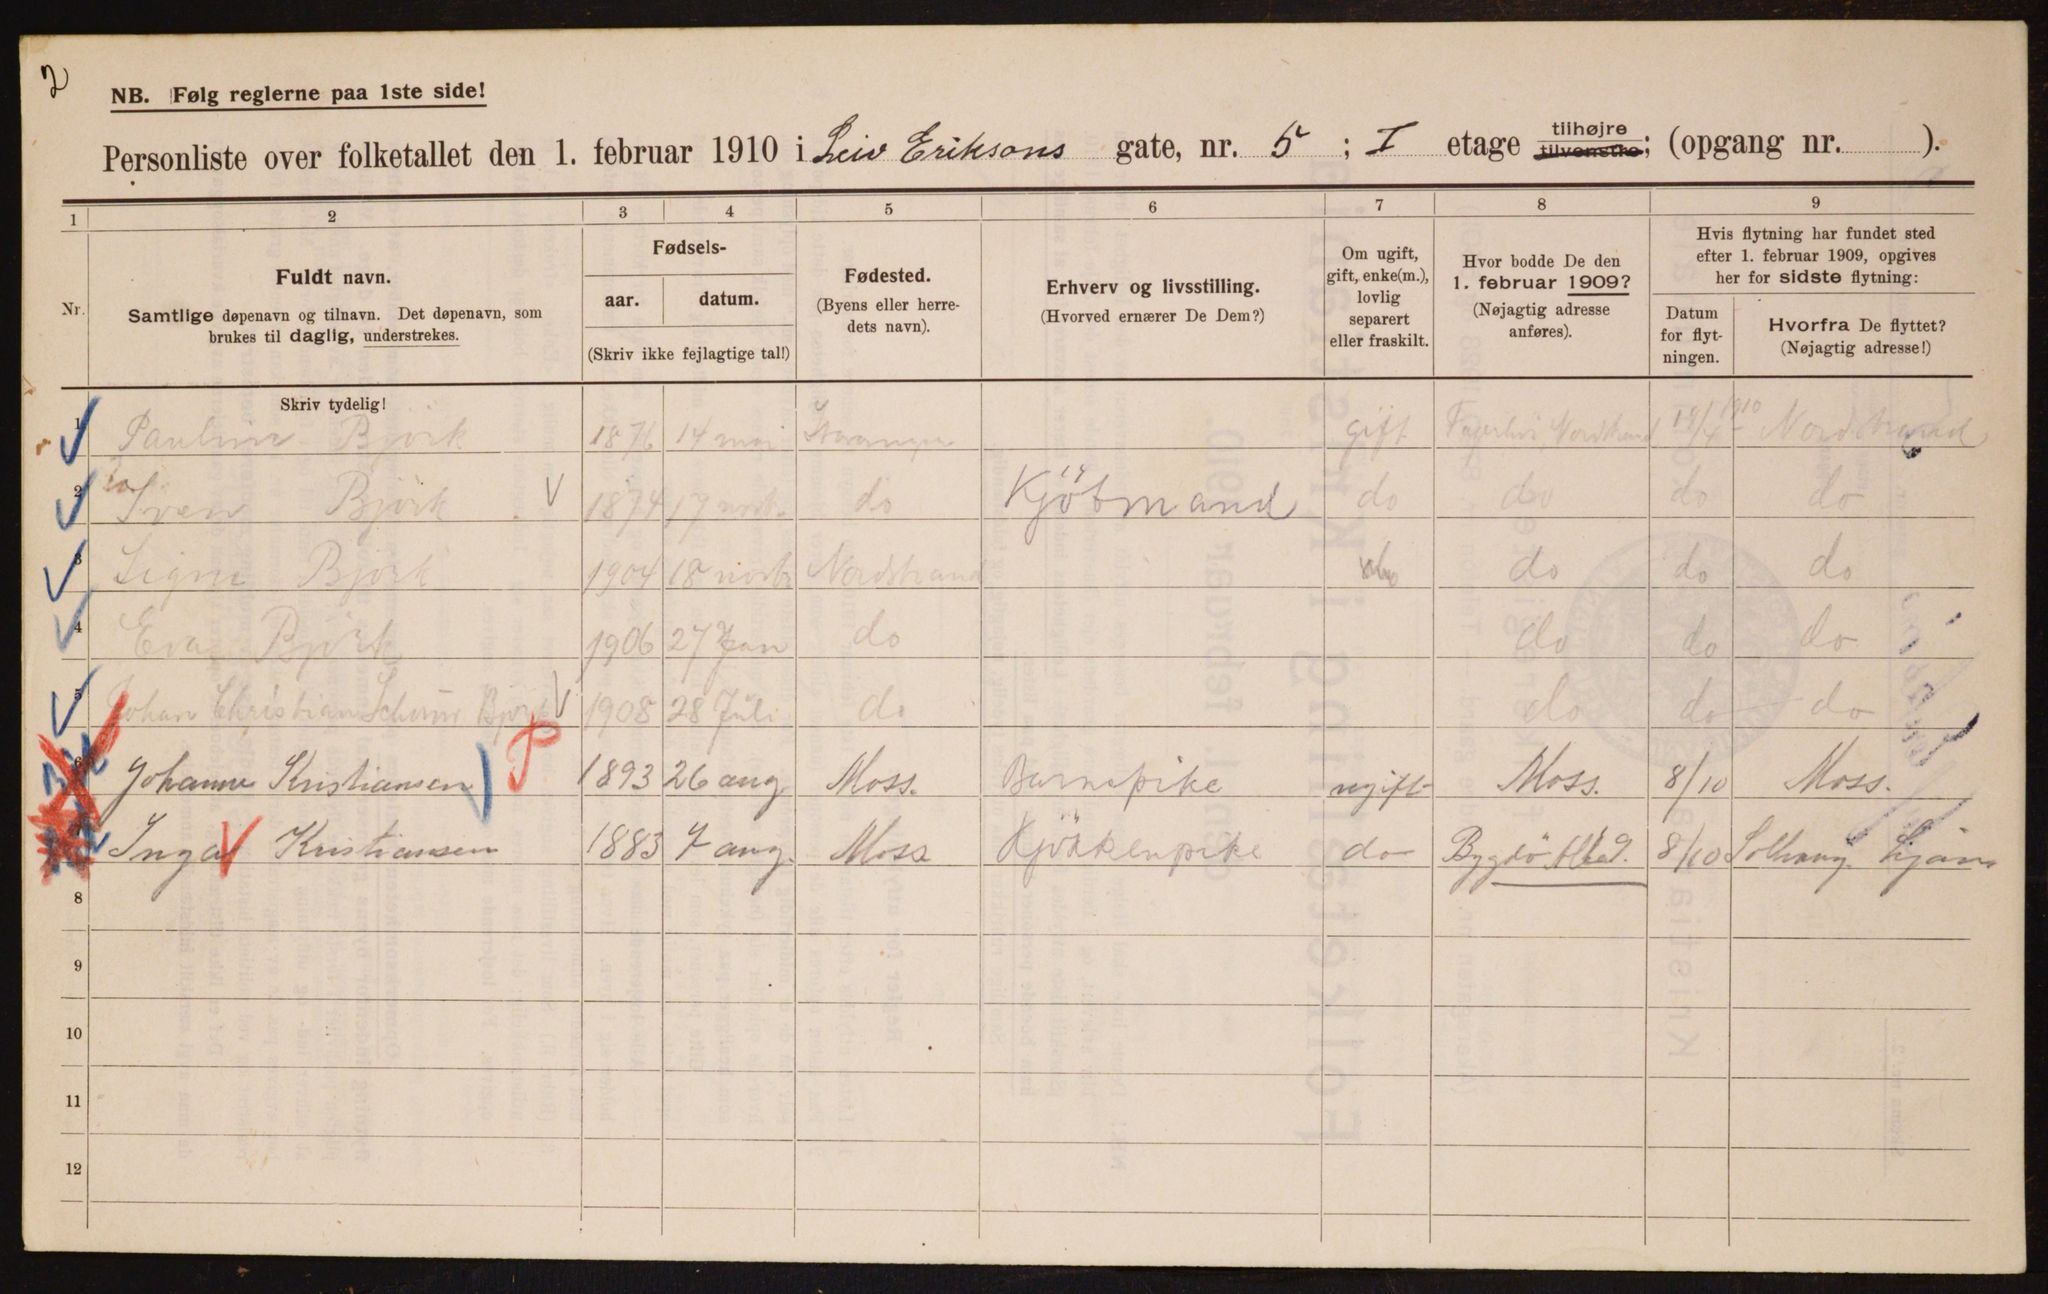 2
NB. Følg reglerne paa 1ste side!
Personliste over folketallet den 1. februar 1910 i Leiv Eriksons gate, nr. 5 ; I etage tilhøjre tilvenstre; (opgang nr. ).
1 2 3 4 5 6 7 8 9
Nr.
Fuldt navn.
Samtlige døpenavn og tilnavn. Det døpenavn, som
brukes til daglig, understrekes.
Skriv tydelig!
Fødsels-
aar. datum.
(Skriv ikke fejlagtige tal!)
Fødested.
(Byens eller herre-
dets navn).
Erhverv og livsstilling.
(Hvorved ernærer De Dem?)
Om ugift,
gift, enke(m.),
lovlig
separert
eller fraskilt.
Hvor bodde De den
1. februar 1909?
(Nøjagtig adresse
anføres).
Hvis flytning har fundet sted
efter 1. februar 1909, opgives
her for sidste flytning:
Datum
for flyt-
ningen.
Hvorfra De flyttet?
(Nøjagtig adresse!)
1 Pauline Björk 1876 14 mai Stavanger gift Nordstrand 1910 Nordstrand
2 Sven Björk 1874 17 novbr do Kjöbmand do do do do
3 Signe Björk 1904 18 novbr Nordstrand do do do
4 Eva Björk 1906 27 Jan do do do do
5 Johan Christian Björk 1908 28 Juli do do do do
6 Johanne Kristiansen 1893 26 aug Moss. Barnepike ugift Moss. 8/10 Moss.
7 Inga Kristiansen 1883 7 aug. Moss Kjökkenpike do Bygdö 8/10 Solhaug Ljan
8
9
10
11
12